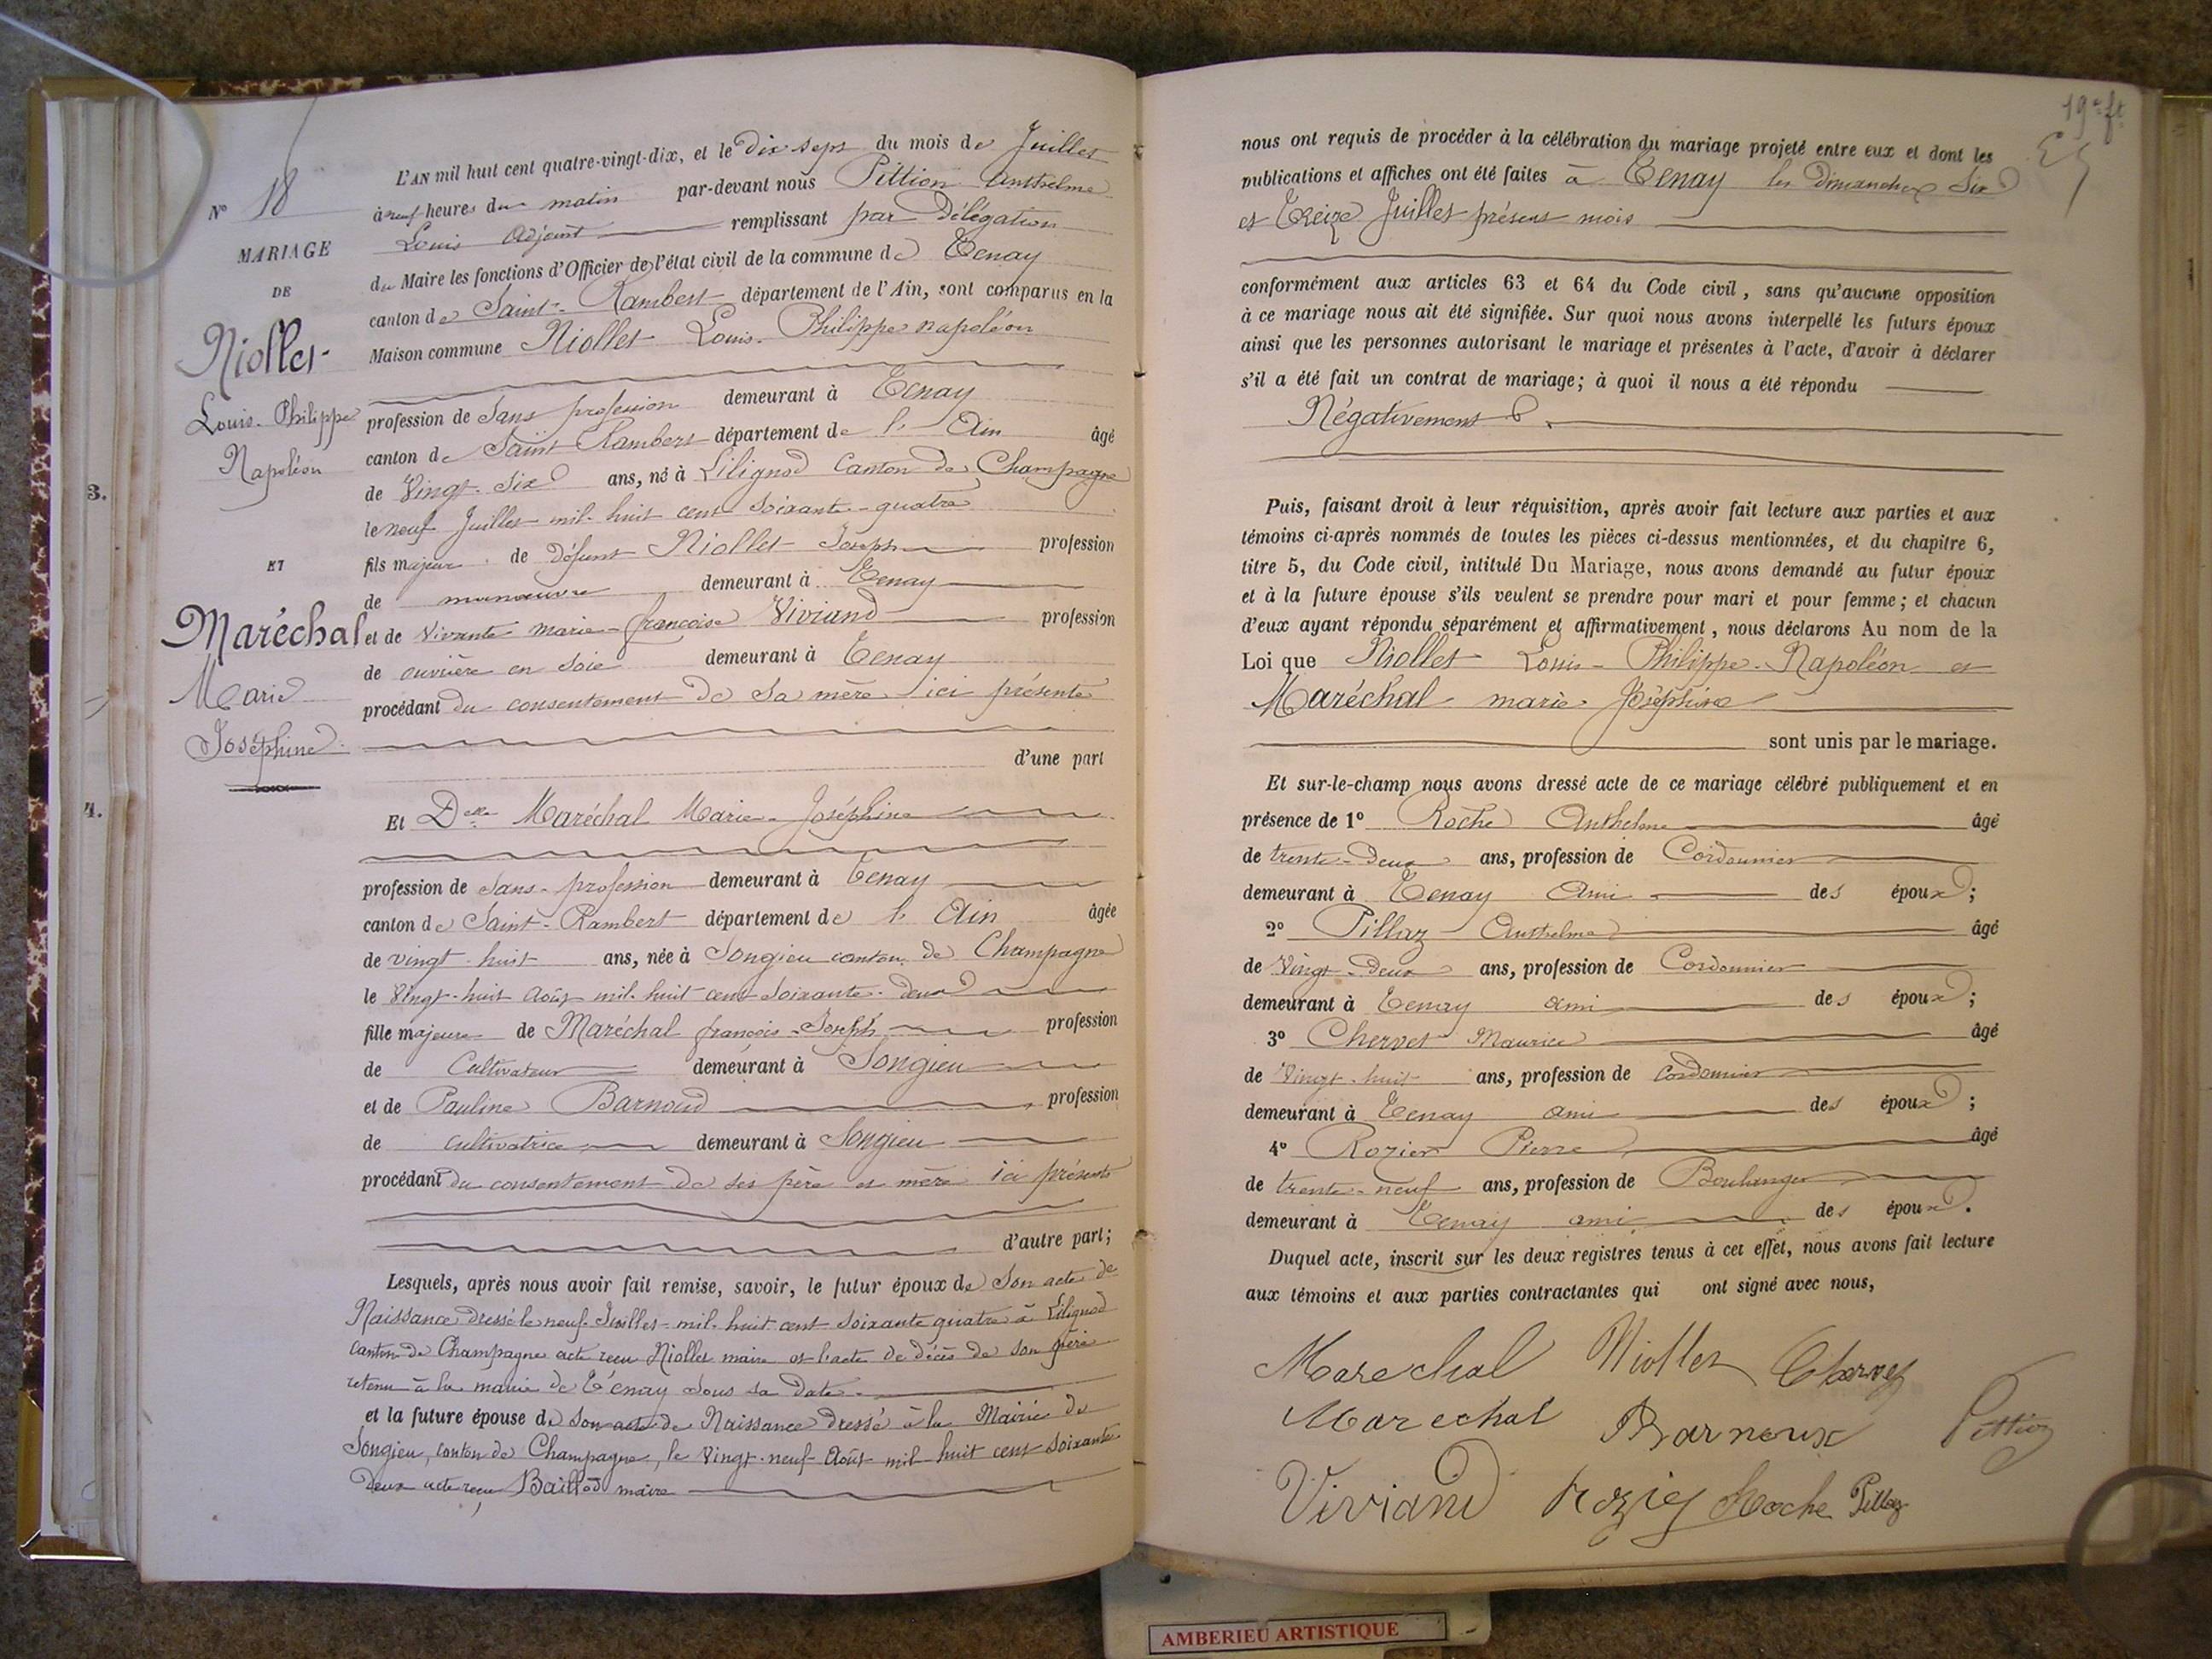 N° 18
MARIAGE
DE
Niollet
Louis-Philippe
Napoléon
ET
Maréchal
Marie
Joséphine
3.
4.
L'AN mil huit cent quatre-vingt-dix, et le Dix sept du mois de Juillet
à neuf heures du matin par-devant nous Pittion Anthelme
Louis Adjoint remplissant par Délégation
du Maire les fonctions d'Officier de l'état civil de la commune de Tenay
canton de Saint-Rambert département de l'Ain, sont comparus en la
Maison commune Niollet Louis-Philippe napoléon
profession de Sans profession demeurant à Tenay
canton de Saint Rambert département de l'Ain âgé
de Vingt-Six ans, né à Lilignod Canton de Champagne
le neuf Juillet mil-huit cent Soixante-quatre
fils majeur de Défunt Niollet Joseph profession
de manœuvre demeurant à Tenay
et de Vivante marie-françoise Viviand profession
de ouvrière en Soie demeurant à Tenay
procédant du consentement de Sa mère ici présente
d'une part
Et Delle Maréchal Marie-Joséphine
profession de Sans-profession demeurant à Tenay
canton de Saint-Rambert département de l'Ain âgée
de vingt-huit ans, née à Songieu canton de Champagne
le Vingt-huit Août mil-huit cent Soixante-deux
fille majeure de Maréchal françois-Joseph profession
de Cultivateur demeurant à Songieu
et de Pauline Barnoud profession
de cultivatrice demeurant à Songieu
procédant du consentement de ses père et mère ici présents
d'autre part;
Lesquels, après nous avoir fait remise, savoir, le futur époux de Son acte de
Naissance dressé le neuf Juillet-mil-huit-cent-Soixante quatre à Lilignod
canton de Champagne acte reçu Niollet maire et l'acte de décès de son père
retenu à la mairie de Tenay Sous sa date.
et la future épouse de Son acte de Naissance dressé à la Mairie de
Songieu, canton de Champagne, le Vingt-neuf Août mil-huit cent Soixante
Deux acte reçu Baillod maire
19e ft
nous ont requis de procéder à la célébration du mariage projeté entre eux et dont les
publications et affiches ont été faites à Tenay les Dimanches Six
et Treize Juillet présent mois
conformément aux articles 63 et 64 du Code civil, sans qu'aucune opposition
à ce mariage nous ait été signifiée. Sur quoi nous avons interpellé les futurs époux
ainsi que les personnes autorisant le mariage et présentes à l'acte, d'avoir à déclarer
s'il a été fait un contrat de mariage; à quoi il nous a été répondu
Négativement
Puis, faisant droit à leur réquisition, après avoir fait lecture aux parties et aux
témoins ci-après nommés de toutes les pièces ci-dessus mentionnées, et du chapitre 6,
titre 5, du Code civil, intitulé Du Mariage, nous avons demandé au futur époux
et à la future épouse s'ils veulent se prendre pour mari et pour femme; et chacun
d'eux ayant répondu séparément et affirmativement, nous déclarons Au nom de la
Loi que Niollet Louis-Philippe-Napoléon et
Maréchal marie-Joséphine
sont unis par le mariage.
Et sur-le-champ nous avons dressé acte de ce mariage célébré publiquement et en
présence de 1° Roche Anthelme âgé
de trente-Deux ans, profession de Cordonnier
demeurant à Tenay Ami des époux;
2° Pillaz Anthelme âgé
de Vingt-Deux ans, profession de Cordonnier
demeurant à Tenay ami des époux;
3° Chervet Maurice âgé
de Vingt-huit ans, profession de cordonnier
demeurant à Tenay ami des époux;
4° Rozier Pierre âgé
de trente-neuf ans, profession de Boulanger
demeurant à Tenay ami des époux.
Duquel acte, inscrit sur les deux registres tenus à cet effet, nous avons fait lecture
aux témoins et aux parties contractantes qui ont signé avec nous,
Marechal Niollet Chervet
Marechal Barnoux Pittion
Viviand Rozier Roche Pillaz
AMBERIEU ARTISTIQUE